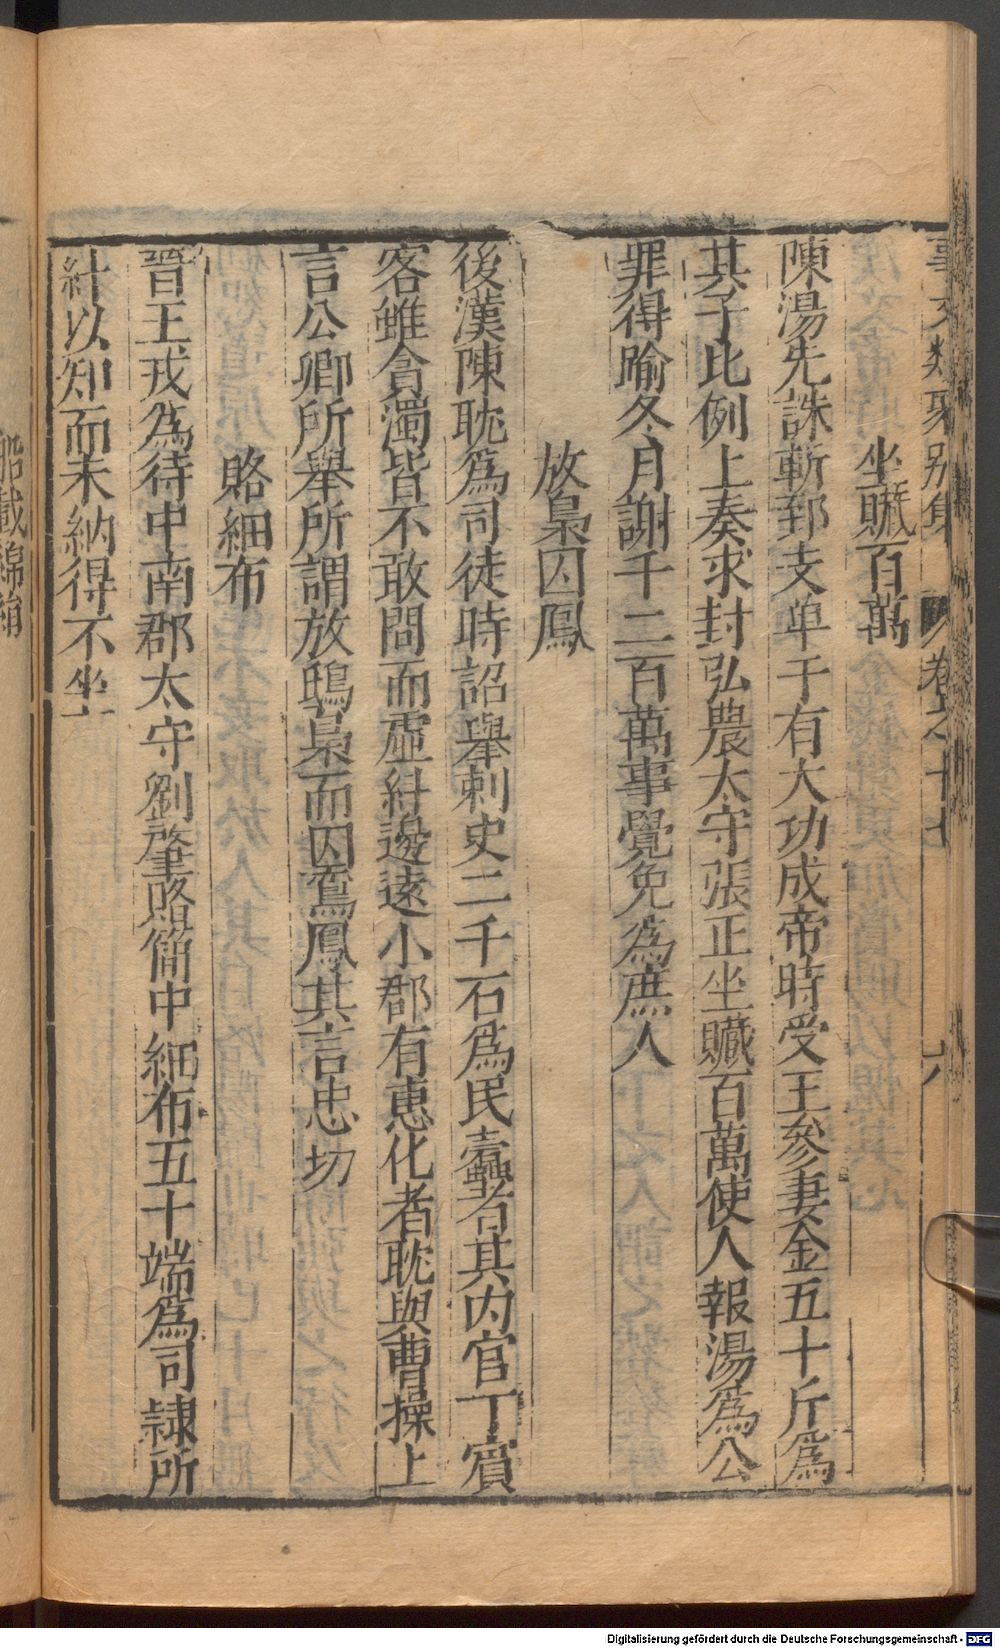 事文類聚別集 卷之十七 六
坐贓百萬
陳湯先誅斬郅支單于有大功成帝時受王參妻金五十斤爲
其子比例上奏求封弘農太守張正坐贓百萬使人報湯爲公
罪得踰冬月謝千二百萬事覺免爲庶人
放梟囚鳳
後漢陳耽爲司徒時詔舉刺史二千石爲民蠹者其内官丁賓
客雖貪濁皆不敢問而虛糾邊遠小郡有惠化者耽與曹操上
言公卿所舉所謂放鴟梟而囚鸞鳳其言忠切
賂細布
晉王戎爲待中南郡太守劉肇賂簡中細布五十端爲司隷所
糾以知而未納得不坐
船載綿絹
Digitalisierung gefördert durch die Deutsche Forschungsgemeinschaft - DFG